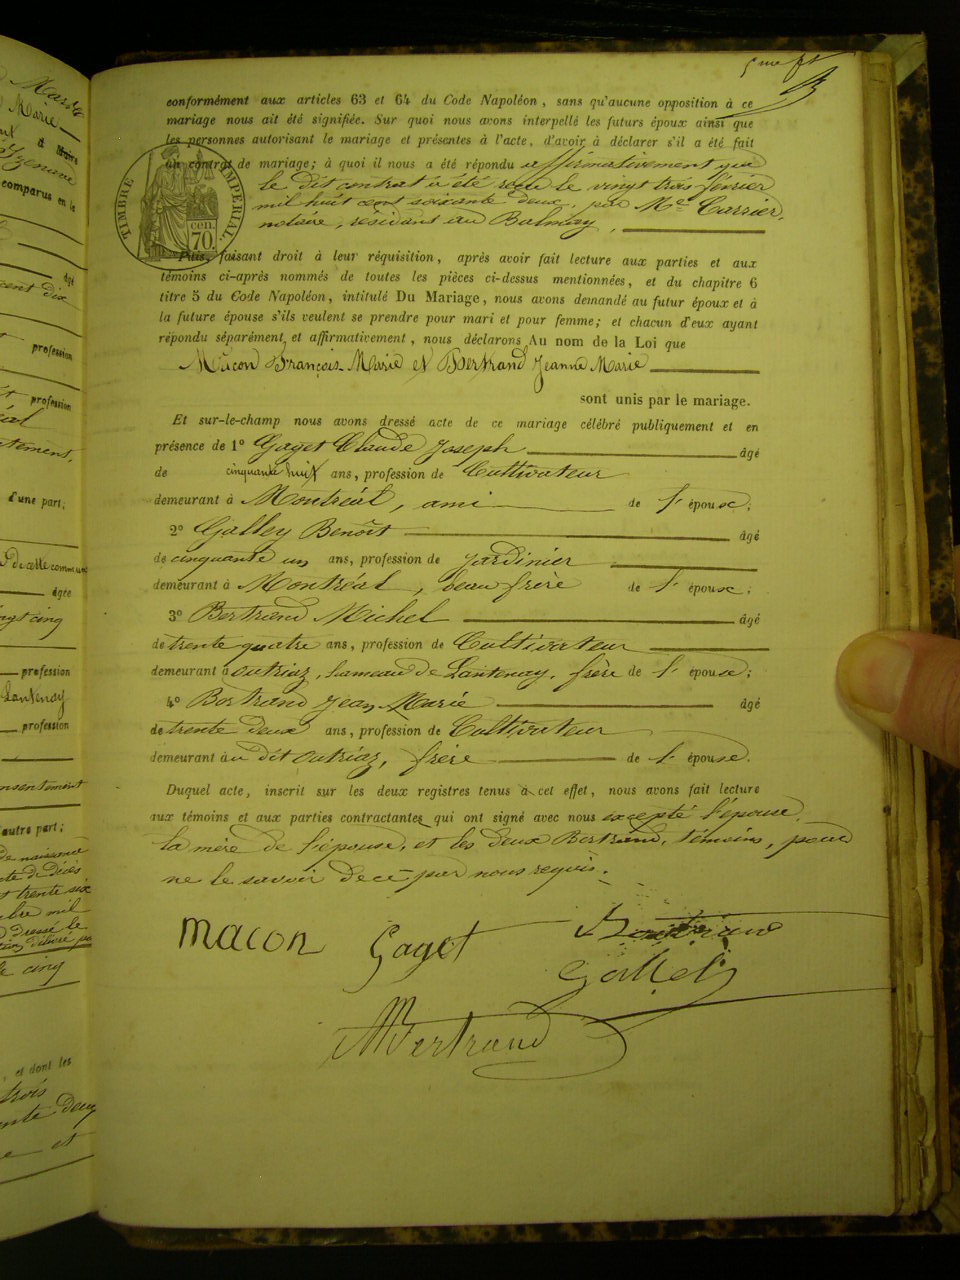 Marie
à
comparus en la
âgé
cent dix
profession
profession
d'une part;
âgée
vingt cinq
profession
Lantenay
profession
consentement
autre part;
de naissance
acte de décès
trente six
mil
dressé le
délivré par
le cinq
, et dont les
trois
trente deux
et
5me ft
conformément aux articles 63 et 64 du Code Napoléon, sans qu'aucune opposition à ce
mariage nous ait été signifiée. Sur quoi nous avons interpellé les futurs époux ainsi que
les personnes autorisant le mariage et présentes à l'acte, d'avoir à déclarer s'il a été fait
un contrat de mariage; à quoi il nous a été répondu affirmativement que
le dit contrat a été reçu le vingt trois février
mil huit cent soixante deux, par Me Carrier,
notaire, résidant au Balmay,
TIMBRE IMPÉRIAL.
cen.
70.
Puis, faisant droit à leur réquisition, après avoir fait lecture aux parties et aux
témoins ci-après nommés de toutes les pièces ci-dessus mentionnées, et du chapitre 6
titre 5 du Code Napoléon, intitulé Du Mariage, nous avons demandé au futur époux et à
la future épouse s'ils veulent se prendre pour mari et pour femme; et chacun d'eux ayant
répondu séparément et affirmativement, nous déclarons Au nom de la Loi que
Macon François-Marie et Bertrand Jeanne Marie
sont unis par le mariage.
Et sur-le-champ nous avons dressé acte de ce mariage célébré publiquement et en
présence de 1o Gaget Claude Joseph âgé
de cinquante huit ans, profession de Cultivateur
demeurant à Montréal, ami de l' épouse;
2o Galley Benoît âgé
de cinquante un ans, profession de Jardinier
demeurant à Montréal, beau frère de l' épouse;
3o Bertrand Michel âgé
de trente quatre ans, profession de Cultivateur
demeurant à outriaz, hameau de Lantenay, frère de l' épouse;
4o Bertrand Jean Marie âgé
de trente deux ans, profession de Cultivateur
demeurant au dit outriaz, frère de l' épouse.
Duquel acte, inscrit sur les deux registres tenus à cet effet, nous avons fait lecture
aux témoins et aux parties contractantes qui ont signé avec nous excepté l'épouse,
la mère de l'épouse, et les deux Bertrand, témoins, pour
ne le savoir de ce par nous requis.
macon
Gaget
Bertrand